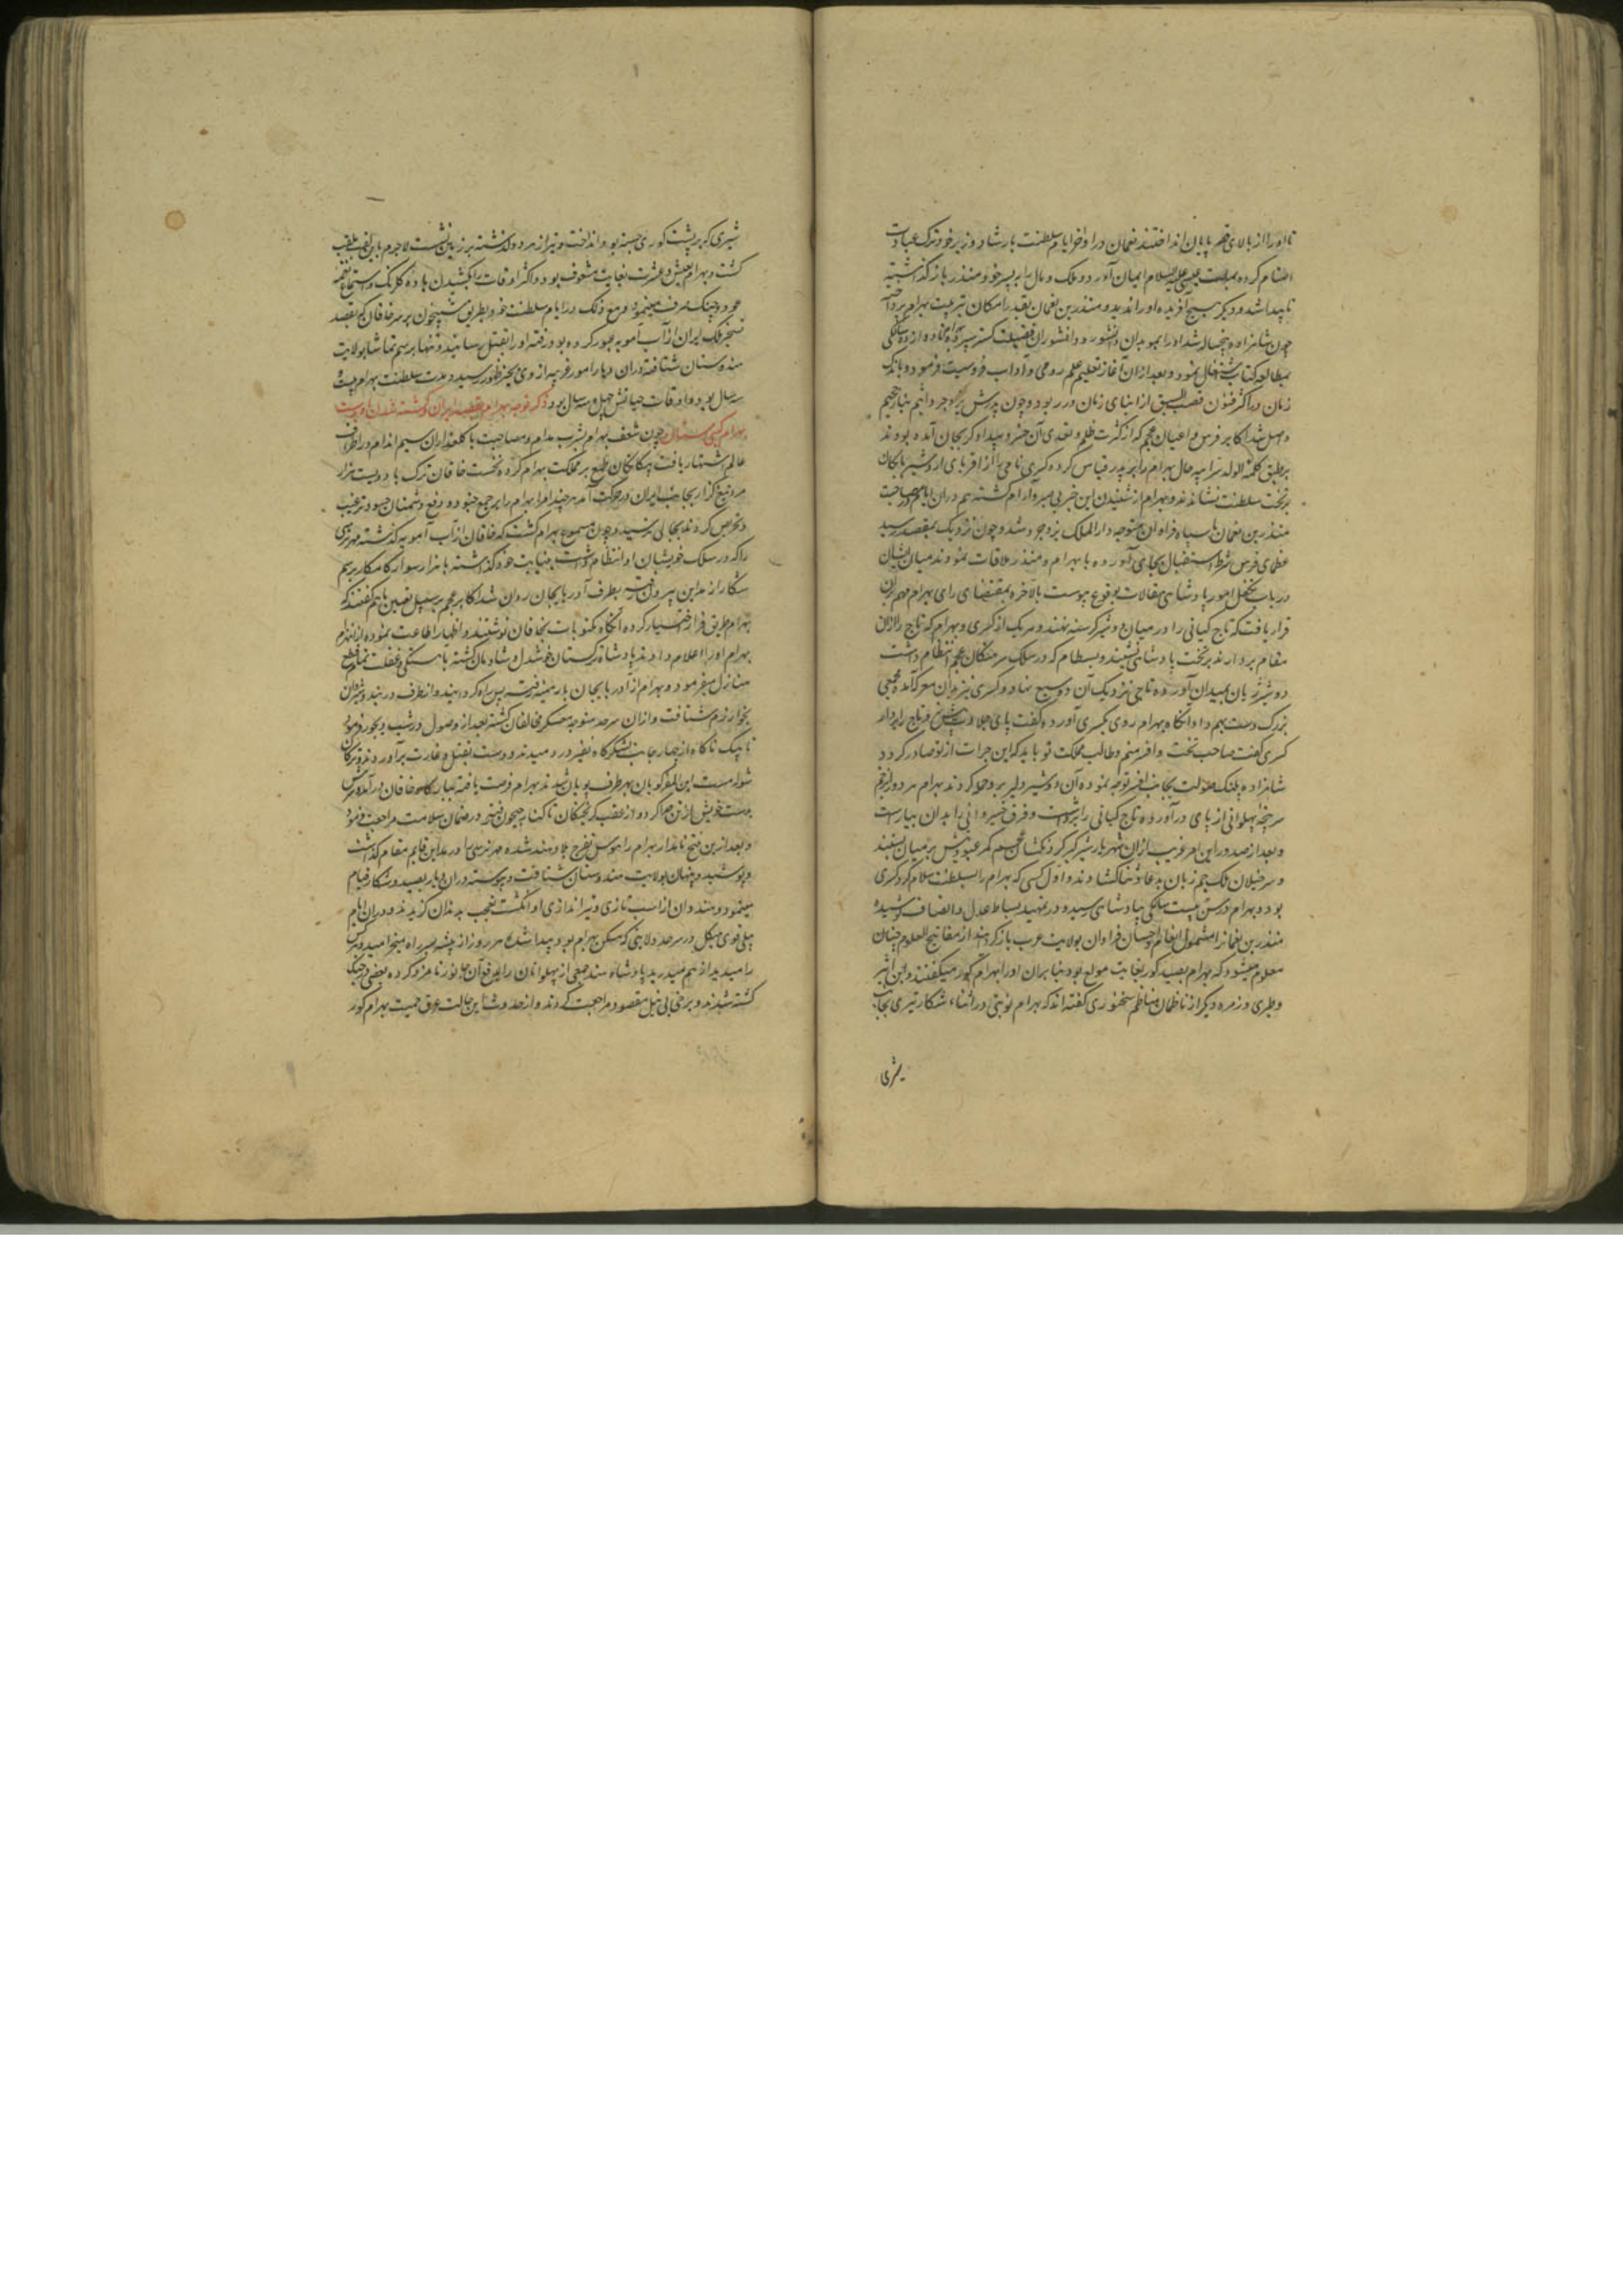 تا او را از بالای قصر بپایان انداختند نعمان در اواخر ایام سلطنت بارشاد وزیر خود ترک عبادت
اصنام کرده بملت عیسی علیه السلام ایمان آورد و ملک و مال را به پسر خود منذر بازگذاشته
ناپیدا شد و دیگر هیچ آفریده او را ندید و منذر بن نعمان بقدر امکان بتربیت بهرام پرداخته
چون شاهزاده پنجساله شد او را بموبدان دانشور و دانشوران فضیلت گستر سپرده بهرام تا ده سالگی
بمطالعه کتاب اشتغال نمود و بعد از آن آغاز تعلیم علم رومی و آداب فروسیت فرمود و باندک
زمان در اکثر فنون قصب السبق از ابنای زمان در ربود و چون پدرش یزدجرد اثیم بنار جحیم
واصل شد اکابر فرس و اعیان عجم که از کثرت ظلم و تعدی آن خسرو بیدادگر بجان آمده بودند
بر طبق کلمه الولد سر ابیه حال بهرام را بر پدر قیاس کرده کسری نامی را از اقربای اردشیر بابکان
بر تخت سلطنت نشاندند و بهرام از شنیدن این خبر بی صبر و آرام گشته هم در آن ایام بمصاحبت
منذر بن نعمان با سپاه فراوان متوجه دار الملک یزدجرد شد و چون نزدیک بمقصد رسید
عظمای فرس شرط استقبال بجای آورده با بهرام و منذر ملاقات نمودند میان ایشان
در باب تکفل امور پادشاهی مقالات بوقوع پیوست بالاخره بمقتضای رای بهرام مهم بران
قرار یافت که تاج کیانی را در میان دو شیر گرسنه نهند و هر یک از کسری و بهرام که تاج را از آن
مقام بردارند بر تخت پادشاهی نشیند و بسطام که در سلک سرهنگان عجم انتظام داشت
دو شیر ژیان بمیدان آورده تاج نزدیک آن دو سبع نهاد و کسری نیز بدان معرکه آمده مجمعی
بزرگ دست بهم داد آنگاه بهرام روی بکسری آورده گفت پای جلادت پیش نه و تاج را بردار
کسری گفت صاحب تخت و افسر منم و طالب مملکت تو باید که این جرات از تو صادر گردد
شاهزاده پلنگ صولت بجانب افسر توجه نموده آن دو شیر دلیر برو حمله کردند بهرام هر دو را بزخم
سرپنجه پهلوانی از پای در آورده تاج کیانی را برداشت و فرق خسروانی را بدان بیاراست
و بعد از صدور این امر غریب از آن شهریار شیرگیر گردنکشان عجم کمر عبودیتش بر میان بستند
و سرخیلان ملک جم زبان بدعا و ثنا گشادند و اول کسی که بهرام را بسلطنت سلام کرد کسری
بود و بهرام در سن بیست سالگی بپادشاهی رسید و در تمهید بساط عدل و انصاف کوشیده
منذر بن نعمان را مشمول انعام و احسان فراوان بولایت عرب بازگردانید از مفاتیح العلوم چنان
معلوم میشود که بهرام بصید گور بغایت مولع بود بنابران او را بهرام گور میگفتند و ابن اثیر
و طبری و زمره دیگر از ناظمان مناظم سخنوری گفته اند که بهرام نوبتی در اثناء شکار تیری بجانب
شیری
شیری که بر پشت گوری جسته بود انداخت و تیر از هر دو گذشته بر زمین نشست لاجرم باین لقب ملقب
گشت و بهرام بعیش و عشرت بغایت مشعوف بود و اکثر اوقات را بکشیدن باده گلرنگ و استماع نغمه
عود و چنگ صرف مینمود و مع ذلک در ایام سلطنت خود بطریق شبیخون بر سر خاقان که بقصد
تسخیر ملک ایران از آب آمویه عبور کرده بود رفته او را بقتل رسانید و تنها برسم تماشا بولایت
هندوستان شتافته در آن دیار امور غریبه از وی بحیز ظهور رسید و مدت سلطنت بهرام بیست و
سه سال بود و اوقات حیاتش چهل و سه سال بود ذکر توجه بهرام
بهرام گیتی ستان چون شعف بهرام بشرب مدام و مصاحبت با گلعذاران سیم اندام در اطراف
عالم اشتهار یافت بیگانگان طمع بر مملکت بهرام کرده نخست خاقان ترک با دویست هزار
مرد تیغ گذار بجانب ایران در حرکت آمد هر چند امرا بهرام را بر جمع جنود و دفع دشمنان حسود ترغیب
و تحریص کردند بجائی نرسید و چون مسموع بهرام گشت که خاقان از آب آمویه گذشته مهر نرسی
را که در سلک خویشان او انتظام داشت بنیابت خود گذاشته با هزار سوار کامکار برسم
شکار از مداین بیرون رفت بطرف آذربایجان روان شد اکابر عجم بر سبیل تعیین با هم گفتند که
بهرام طریق فرار اختیار کرده آنگاه مکتوبات بخاقان نوشتند و اظهار اطاعت نموده از انهزام
بهرام او را اعلام دادند پادشاه ترکستان خوشدل و شادمان گشته بآهستگی و غفلت تمام قطع
منازل میفرمود و بهرام از آذربایجان بارمنیه رفت پس راه گردانید و از طرف دربند و شیروان
بخوارزم شتافت و از آن سرحد متوجه معسکر مخالفان گشته بعد از وصول در شب دیجور فرمود
تا بیک ناگاه از چهار جانب لشکرگاه نفیر در دمیدند و دست بقتل و غارت برآوردند و ترکان
بهر طرف پویان شدند بهرام فرصت یافته ببارگاه خاقان در آمد و سرش
بدست خویش از تن جدا کرد و از عقب گریختگان تا کنار جیحون رفته در ضمان سلامت مراجعت فرمود
و بعد از این فتح نامدار بهرام را هوس تفرج بلاد هند شده مهر نرسی را در مداین قایم مقام گذاشت
و پوشیده و پنهان بولایت هندوستان شتافت و پیوسته در آن دیار بصید و شکار قیام
مینمود و هندوان از اسب تازی و تیراندازی او انگشت تعجب بدندان گزیدند و در آن ایام
پیلی قوی هیکل در سرحد ولایتی که مسکن بهرام بود پیدا شد که هر روز از بیشه بر سر راه میخرامید و هر کس
را میدید از هم میدرید پادشاه هند جمعی از پهلوانان را بدفع آن جانور نامزد کرده بعضی در جنگ
کشته شدند و برخی بی نیل مقصود مراجعت کردند و از حدوث این حالت عرق حمیت بهرام گور